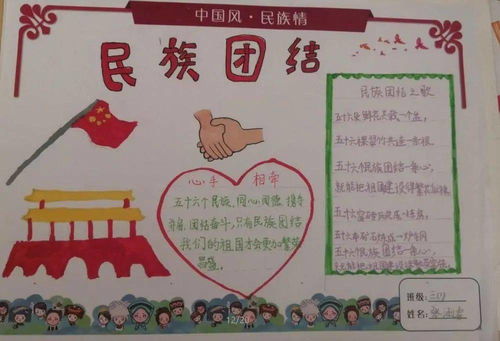 中国风·民族情
民族团结
心手 相牵
五十六个民族,同心同德,携手
并肩,团结奋斗,只有民族团结
我们的祖国才会更加繁荣
昌盛。
民族团结之歌
五十六朵鲜花栽一个盆,
五十六棵翠竹共连一条根,
五十六个民族团结一条心,
就能把祖国建设得繁荣
五十六
五十六 矿石炼成一炉钢
五十六个民族团结一条心,
就能把祖国建设得
班级:三(1)
姓名:
12/20